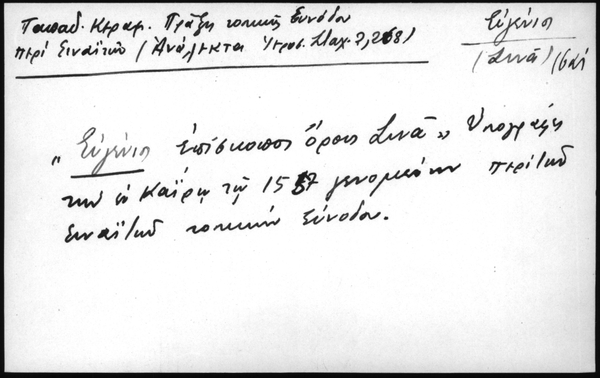 Παπαδ. Κεραμ. Πράξις τοπικῆς Συνόδου
περί Σιναϊτῶν (Ἀνάλεκτα Ἱεροσ. Σταχ. 2, 268)
Εὐγένιος
(Σινᾶ)
„Εὐγένιος ἐπίσκοπος Ὄρους Σινᾶ" Ὑπογράφει
τὴν ἐν Καΐρῳ τῷ 1557 γενομένην περὶ τῶν
Σιναϊτῶν τοπικὴν Σύνοδον.